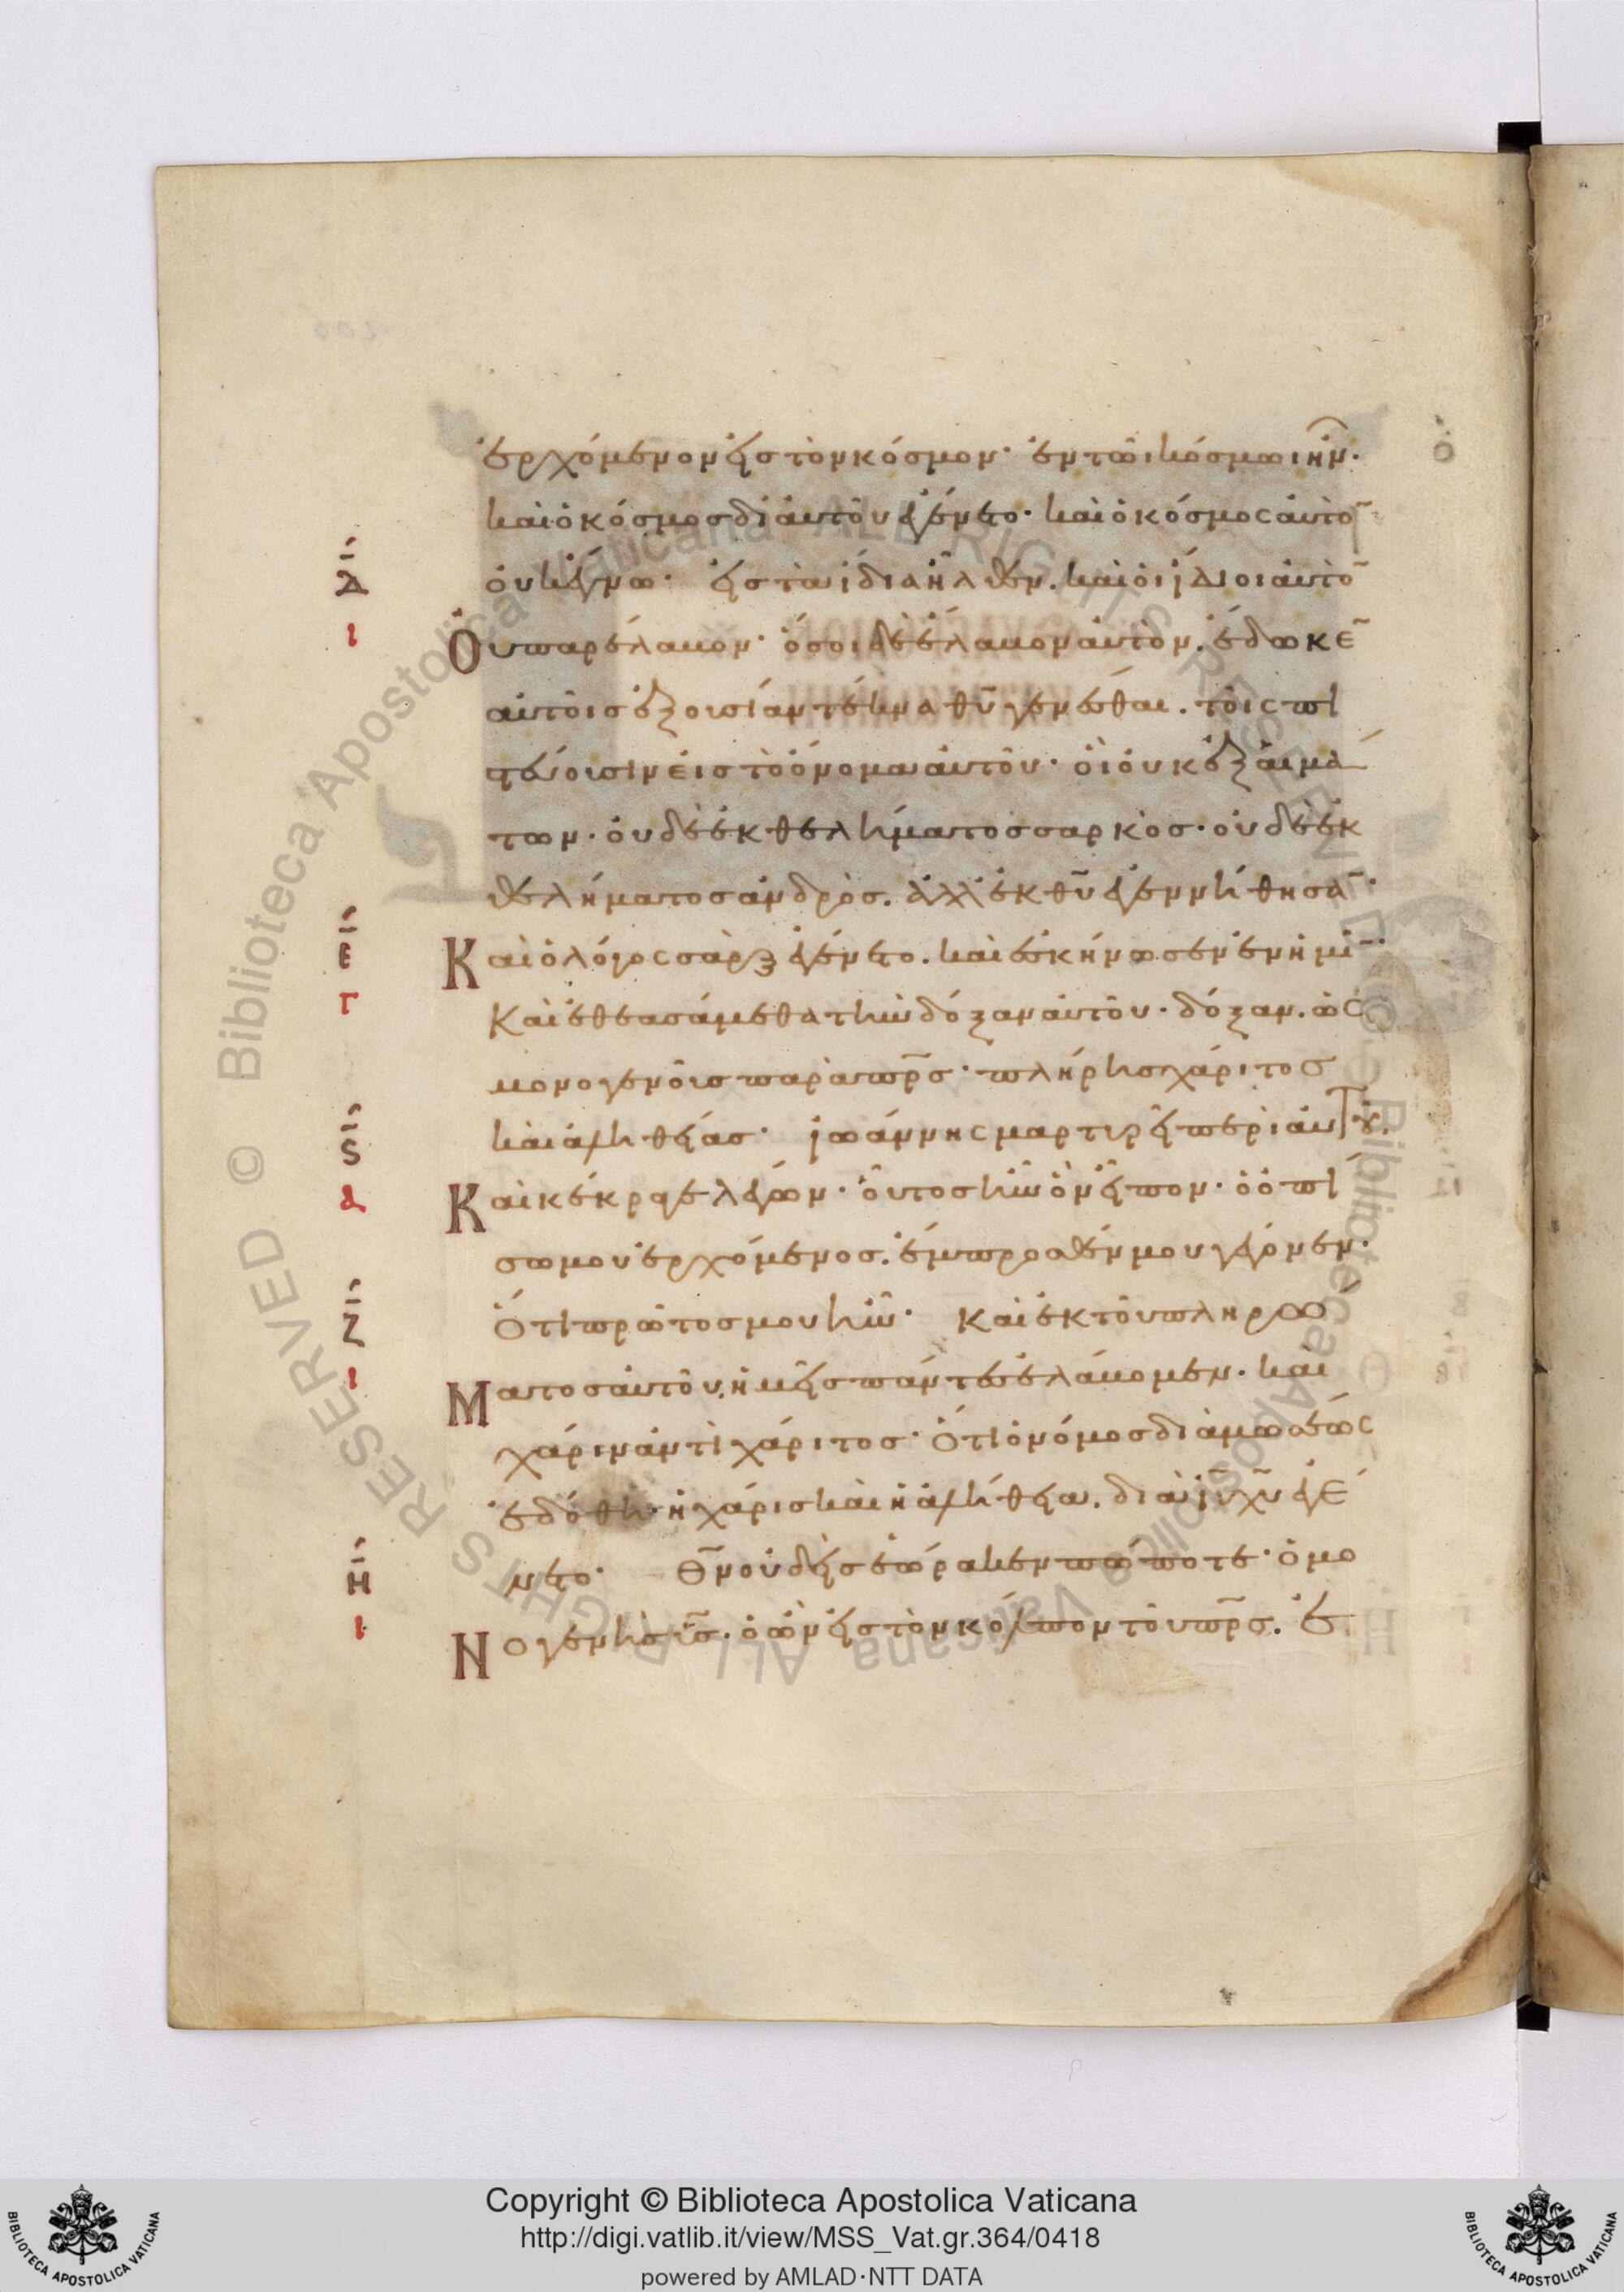 ἐρχόμενον εἰς τὸν κόσμον· ἐν τῶι κόσμωι ἦν·
καὶ ὁ κόσμος δι' αὐτοῦ ἐγένετο· καὶ ὁ κόσμος αὐτο̄
Δ
οὐκ ἔγνω· εἰς τὰ ἴδια ἦλθεν. καὶ οἱ ἴδιοι αὐτο̄
Ι
Οὐ παρέλαβον· ὅσοι δὲ ἔλαβον αὐτὸν. ἔδωκε̄
αὐτοῖς ἐξουσίαν τέκνα θῦ γενέσθαι. τοῖς πι
στεύουσιν εἰς τὸ ὄνομα αὐτοῦ· οἳ οὐκ ἐξ αἱμά
των· οὐδὲ ἐκ θελήματος σαρκὸς· οὐδὲ ἐκ
θελήματος ἀνδρὸς. ἀλλ' ἐκ θῦ ἐγεννήθησᾱ·
Ε
Καὶ ὁ λόγος σὰρξ ἐγένετο. καὶ ἐσκήνωσεν ἐν ἡμῖ̄·
Γ
Καὶ ἐθεασάμεθα τὴν δόξαν αὐτοῦ· δόξαν. ὡς
μονογενοῦς παρὰ πρ̅ς· πλήρης χάριτος
S
καὶ ἀληθείας· ἰωάννης μαρτυρεῖ περὶ αὐτοῦ.
α
Καὶ κέκραγε λέγων· οὗτος ἦν ὃν εἶπον· ὁ ὀπί
σω μου ἐρχόμενος. ἔμπροσθέν μου γέγονεν·
Ζ
Ὅτι πρῶτος μου ἦν· Καὶ ἐκ τοῦ πληρώ
Ι
Ματος αὐτοῦ, ἡμεῖς πάντες ἐλάβομεν· καὶ
χάριν ἀντὶ χάριτος· Ὅτι ὁ νόμος διὰ μωσέως
ἐδόθη· ἡ χάρις καὶ ἡ ἀλήθεια. διὰ ἰῦ χῦ ἐγέ
Η
νετο· Θν̅ οὐδεὶς ἑώρακεν πώποτε· ὁ μο
Ι
Νογενὴς υἱς̅. ὁ ὢν εἰς τὸν κόλπον τοῦ πρ̅ς. ἐ
Copyright © Biblioteca Apostolica Vaticana
http://digi.vatlib.it/view/MSS_Vat.gr.364/0418
powered by AMLAD·NTT DATA
BIBLIOTECA APOSTOLICA VATICANA
BIBLIOTECA APOSTOLICA VATICANA
© Biblioteca Apostolica Vaticana ALL RIGHTS RESERVED © Biblioteca Apostolica Vaticana ALL RIGHTS RESERVED